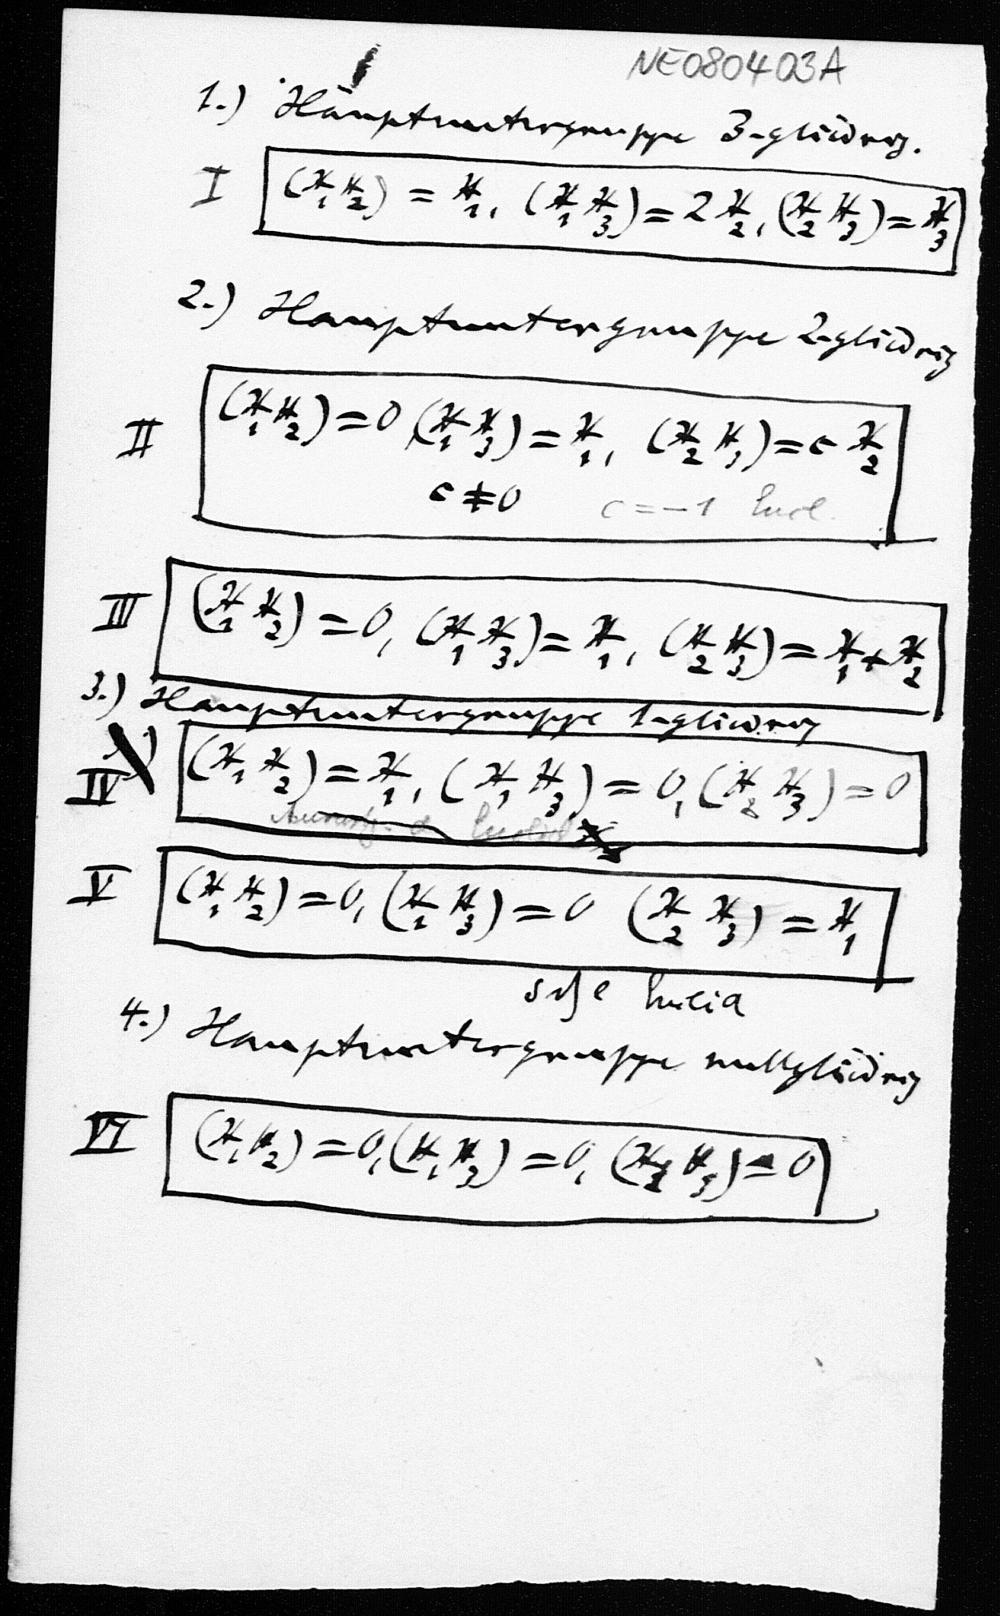 NE080403A
1.) Hauptuntergruppe 3-gliedrig.
I (X₁ X₂) = X₁, (X₁ X₃) = 2 X₂, (X₂ X₃) = X₃
2.) Hauptuntergruppe 2-gliedrig
II (X₁ X₂) = 0 (X₁ X₃) = X₁, (X₂ X₃) = c X₂
c ≠ 0 c = -1
III (X₁ X₂) = 0, (X₁ X₃) = X₁, (X₂ X₃) = X₁ + X₂
3.) Hauptuntergruppe 1-gliedrig
IV (X₁ X₂) = X₁, (X₁ X₃) = 0, (X₂ X₃) = 0
V (X₁ X₂) = 0, (X₁ X₃) = 0 (X₂ X₃) = X₁
4.) Hauptuntergruppe nullgliedrig
VI (X₁ X₂) = 0, (X₁ X₃) = 0, (X₂ X₃) = 0